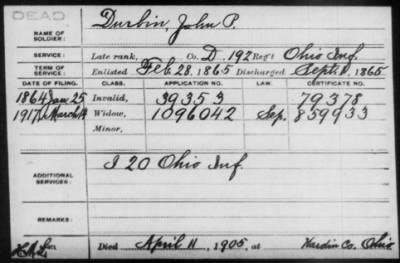 DEAD
NAME OF SOLDIER: Durbin, John P.
SERVICE: Late rank, Co. D, 192 Reg't Ohio Inf.
TERM OF SERVICE: Enlisted Feb. 28, 1865 Discharged Sept. 1, 1865
DATE OF FILING. CLASS. APPLICATION NO. LAW. CERTIFICATE NO.
1864 Jan 25 Invalid, 39353 79378
1917 March Widow, 1096042 Sep. 859933
Minor,
ADDITIONAL SERVICES: I 20 Ohio Inf.
REMARKS:
Died April 11, 1905, at Hardin Co. Ohio